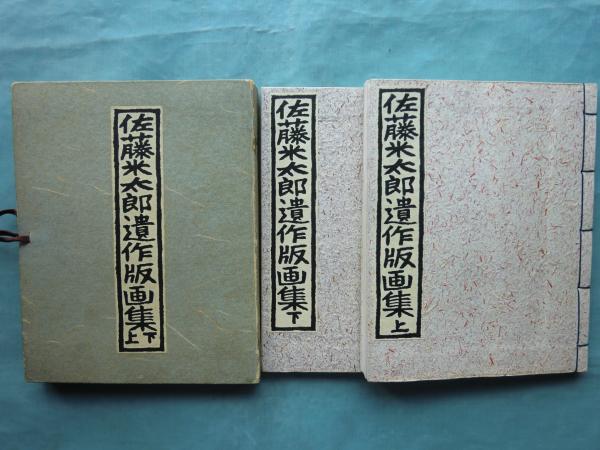 佐藤米太郎遺作版画集 上下
佐藤米太郎遺作版画集 下
佐藤米太郎遺作版画集 上